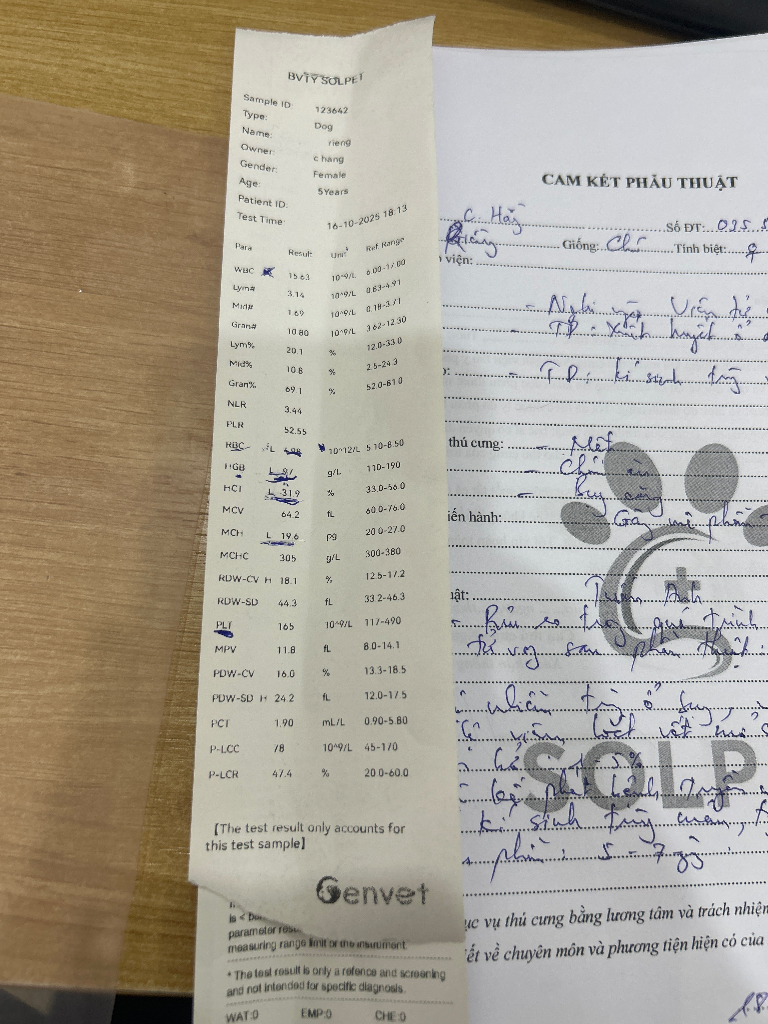 BVTY SOLPET
Sample ID: 123642
Type: Dog
Name: rieng
Owner: c hang
Gender: Female
Age: 5Years
Patient ID:
Test Time: 16-10-2025 18:13
Para Result Unit Ref. Range
WBC 15.63 10^9/L 6.00-17.00
Lym# 3.14 10^9/L 0.63-4.91
Mid# 1.69 10^9/L 0.18-3.71
Gran# 10.80 10^9/L 3.62-12.30
Lym% 20.1 % 12.0-33.0
Mid% 10.8 % 2.5-24.3
Gran% 69.1 % 52.0-81.0
NLR 3.44
PLR 52.55
RBC L 10^12/L 5.10-8.50
HGB L g/L 110-190
HCT L 31.9 % 33.0-56.0
MCV 64.2 fL 60.0-76.0
MCH L 19.6 pg 20.0-27.0
MCHC 305 g/L 300-380
RDW-CV H 18.1 % 12.5-17.2
RDW-SD 44.3 fL 33.2-46.3
PLT 165 10^9/L 117-490
MPV 11.8 fL 8.0-14.1
PDW-CV 16.0 % 13.3-18.5
PDW-SD H 24.2 fL 12.0-17.5
PCT 1.90 mL/L 0.90-5.80
P-LCC 78 10^9/L 45-170
P-LCR 47.4 % 20.0-60.0
【The test result only accounts for
this test sample】
Genvet
parameter
measuring range limit of the instrument.
* The test result is only a refence and screening
and not intended for specific diagnosis.
WAT:0 EMP:0 CHE:0
CAM KẾT PHẪU THUẬT
C. Hằng Số ĐT: 035.5
Riềng Giống: Chó Tính biệt: ♀
viện:
- Nghi ngờ Viêm tử
- TD: Xuất huyết ổ
- TD: kí sinh trùng
thú cưng: - Mệt
- Chán ăn
- Suy
iến hành: Gây mê phẫu
uật: Tuấn Anh
- Rủi ro trong quá trình
tử vong sau phẫu thuật:
nhiễm trùng ổ bụng,
5%
phát bệnh truyền
kí sinh trùng máu,
phẫu: 5 - 7 ngày
SOLP
ục vụ thú cưng bằng lương tâm và trách nhiệm
ết về chuyên môn và phương tiện hiện có của